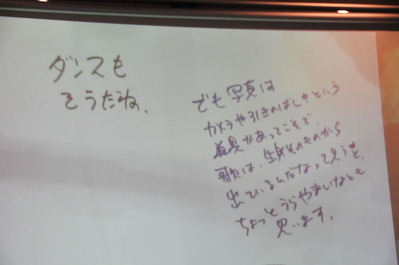 ダンスも
そうだね、
でも写真は
カメラや引きのばしキという
道具があってこそで、
歌は、生身そのものから
出ているんだなって思うと、
ちょっとうらやましいなとも
思います。